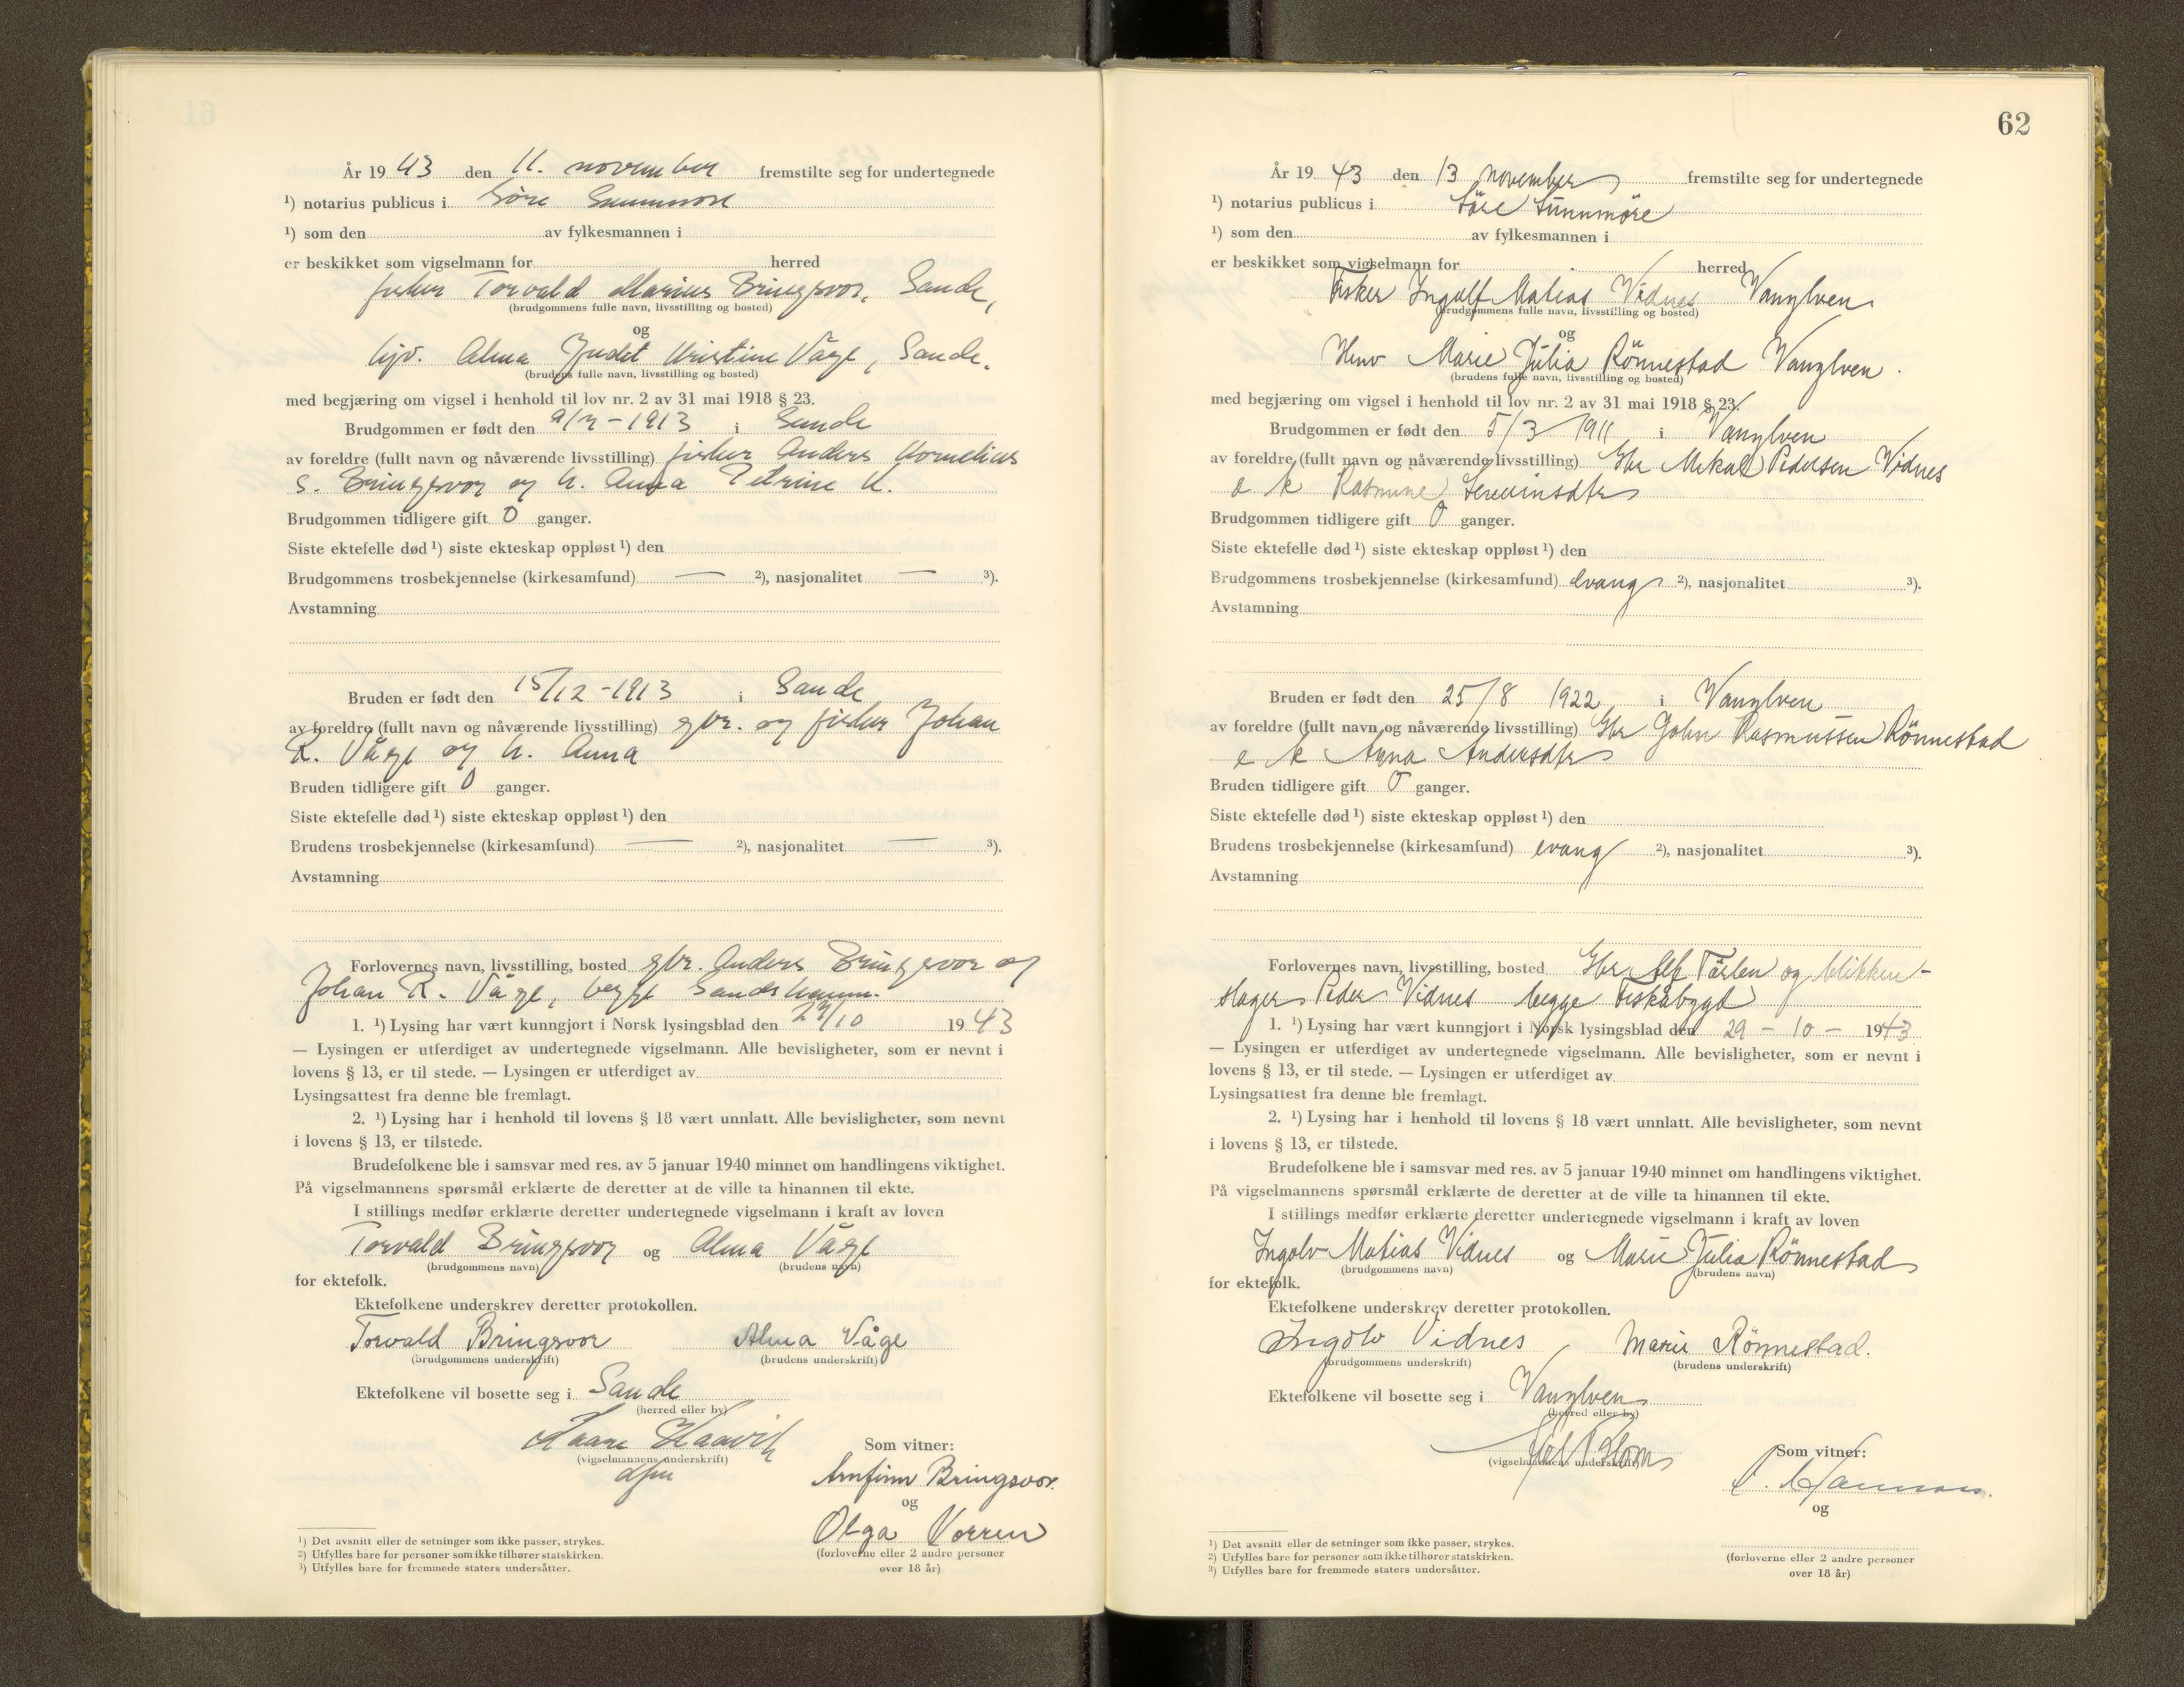 År 19 43 den 11. november fremstilte seg for undertegnede
¹) notarius publicus i Söre Sunnmöre
¹) som den av fylkesmannen i
er beskikket som vigselmann for herred
fisker Torvald Marius Bringsvor, Sande,
(brudgommens fulle navn, livsstilling og bosted)
og
hjv. Alma Judit Kristine Våge, Sande.
(brudens fulle navn, livsstilling og bosted)
med begjæring om vigsel i henhold til lov nr. 2 av 31 mai 1918 § 23.
Brudgommen er født den -1913 i Sande
av foreldre (fullt navn og nåværende livsstilling) fisker Anders Kornelius
S. Bringsvor og h. Anna Petrine K.
Brudgommen tidligere gift 0 ganger.
Siste ektefelle død ¹) siste ekteskap oppløst ¹) den
Brudgommens trosbekjennelse (kirkesamfund) — ²), nasjonalitet — ³).
Avstamning
Bruden er født den 15/12 -1913 i Sande
av foreldre (fullt navn og nåværende livsstilling) gbr. og fisker Johan
R. Våge og h. Anna
Bruden tidligere gift 0 ganger.
Siste ektefelle død ¹) siste ekteskap oppløst ¹) den
Brudens trosbekjennelse (kirkesamfund) — ²), nasjonalitet — ³).
Avstamning
Forlovernes navn, livsstilling, bosted gbr. Anders Bringsvor og
Johan R. Våge, begge Sandshamn.
1. ¹) Lysing har vært kunngjort i Norsk lysingsblad den 29/10 19 43
— Lysingen er utferdiget av undertegnede vigselmann. Alle bevisligheter, som er nevnt i
lovens § 13, er til stede. — Lysingen er utferdiget av
Lysingsattest fra denne ble fremlagt.
2. ¹) Lysing har i henhold til lovens § 18 vært unnlatt. Alle bevisligheter, som nevnt
i lovens § 13, er tilstede.
Brudefolkene ble i samsvar med res. av 5 januar 1940 minnet om handlingens viktighet.
På vigselmannens spørsmål erklærte de deretter at de ville ta hinannen til ekte.
I stillings medfør erklærte deretter undertegnede vigselmann i kraft av loven
Torvald Bringsvor og Alma Våge
(brudgommens navn) (brudens navn)
for ektefolk.
Ektefolkene underskrev deretter protokollen.
Torvald Bringsvor Alma Våge
(brudgommens underskrift) (brudens underskrift)
Ektefolkene vil bosette seg i Sande
(herred eller by)
Kaare Haavik
(vigselmannens underskrift)
dfm
Som vitner:
Arnfinn Bringsvor.
og
Olga Vorren
(forloverne eller 2 andre personer
over 18 år)
¹) Det avsnitt eller de setninger som ikke passer, strykes.
²) Utfylles bare for personer som ikke tilhører statskirken.
³) Utfylles bare for fremmede staters undersåtter.
62
År 19 43 den 13 november fremstilte seg for undertegnede
¹) notarius publicus i Söre Sunnmöre
¹) som den av fylkesmannen i
er beskikket som vigselmann for herred
Fisker Ingolf Matias Vidnes Vanylven
(brudgommens fulle navn, livsstilling og bosted)
og
Hmv Marie Julia Rönnestad Vanylven.
(brudens fulle navn, livsstilling og bosted)
med begjæring om vigsel i henhold til lov nr. 2 av 31 mai 1918 § 23.
Brudgommen er født den 5/3 1911 i Vanylven
av foreldre (fullt navn og nåværende livsstilling) Gbr Mekal Pedersen Vidnes
o k Rasmine Severinsdtr
Brudgommen tidligere gift 0 ganger.
Siste ektefelle død ¹) siste ekteskap oppløst ¹) den
Brudgommens trosbekjennelse (kirkesamfund) evang ²), nasjonalitet ³).
Avstamning
Bruden er født den 25/8 1922 i Vanylven
av foreldre (fullt navn og nåværende livsstilling) Gbr John Rasmussen Rönnestad
o k Anna Andersdtr
Bruden tidligere gift 0 ganger.
Siste ektefelle død ¹) siste ekteskap oppløst ¹) den
Brudens trosbekjennelse (kirkesamfund) evang ²), nasjonalitet ³).
Avstamning
Forlovernes navn, livsstilling, bosted Gbr Alf og blikken-
slager Peder Vidnes begge Fiskåbygd
1. ¹) Lysing har vært kunngjort i Norsk lysingsblad den 29 - 10 - 1943
— Lysingen er utferdiget av undertegnede vigselmann. Alle bevisligheter, som er nevnt i
lovens § 13, er til stede. — Lysingen er utferdiget av
Lysingsattest fra denne ble fremlagt.
2. ¹) Lysing har i henhold til lovens § 18 vært unnlatt. Alle bevisligheter, som nevnt
i lovens § 13, er tilstede.
Brudefolkene ble i samsvar med res. av 5 januar 1940 minnet om handlingens viktighet.
På vigselmannens spørsmål erklærte de deretter at de ville ta hinannen til ekte.
I stillings medfør erklærte deretter undertegnede vigselmann i kraft av loven
Ingolv Matias Vidnes og Marie Julia Rönnestad
(brudgommens navn) (brudens navn)
for ektefolk.
Ektefolkene underskrev deretter protokollen.
Ingolv Vidnes Marie Rönnestad.
(brudgommens underskrift) (brudens underskrift)
Ektefolkene vil bosette seg i Vanylven
(herred eller by)
(vigselmannens underskrift)
Som vitner:
og
(forloverne eller 2 andre personer
over 18 år)
¹) Det avsnitt eller de setninger som ikke passer, strykes.
²) Utfylles bare for personer som ikke tilhører statskirken.
³) Utfylles bare for fremmede staters undersåtter.